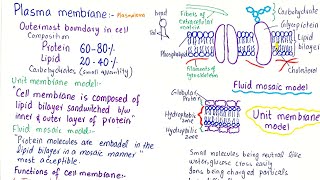 Plasma membrane:- Plasmalemma
Outermost boundary in cell
Composition
Protein 60-80%
Lipid 20-40%
Carbohydrates (small quantity)
Unit membrane model:-
"Cell membrane is composed of
lipid bilayer sandwitched b/w
inner & outer layer of protein"
Fluid mosaic model:-
Protein molecules are embaded in the
lipid bilayer in a mosaic manner
most acceptible.
Functions of cell membrane:-
Fibers of
extracellular
matrix
Carbohydrate
Glycoprotein
Lipid
bilayer
Phospholipid
Filaments of
cytoskeleton
Cholesterol
Fluid mosaic model
Globular
Protein
Hydrophobic
zone
Hydrophilic
zone
Unit membrane
model
Small molecules being neutral like
water, glucose cross easily
Ions being charged particles